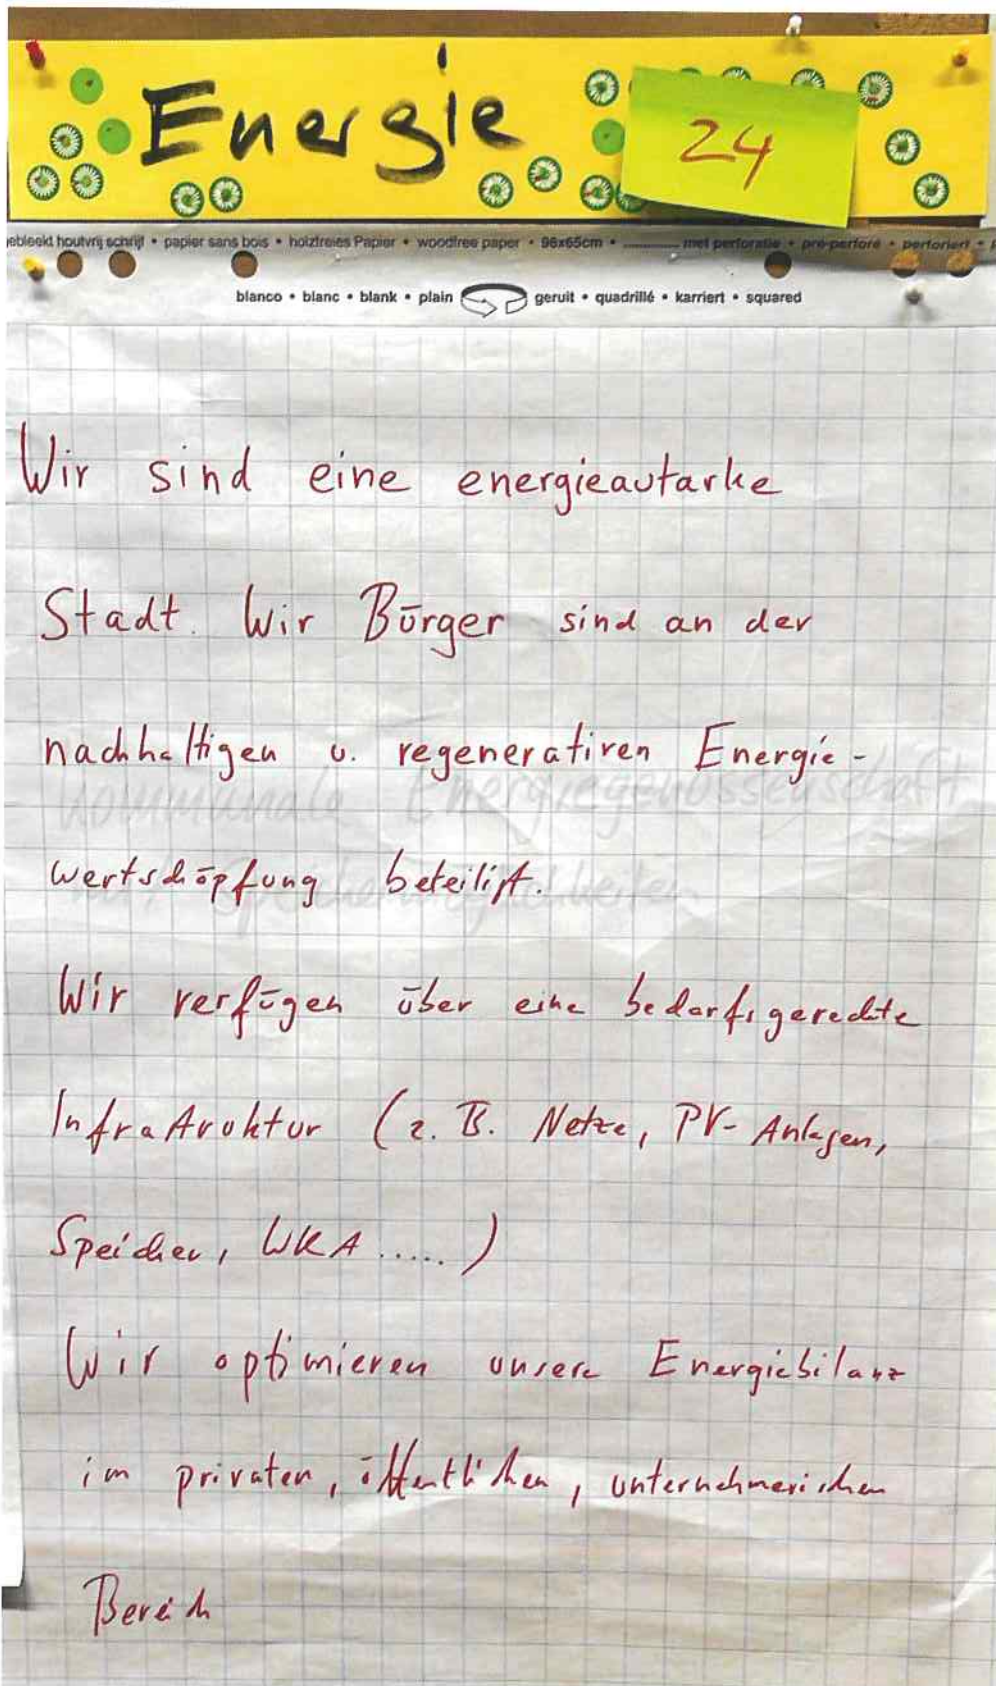 Energie
24
ebleekt houtvrij schrijf • papier sans bois • holzfreies Papier • woodfree paper • 98x65cm • met perforatie • pré-perforé • perforiert •
blanco • blanc • blank • plain geruit • quadrillé • kariert • squared
Wir sind eine energieautarke
Stadt. Wir Bürger sind an der
nachhaltigen u. regenerativen Energie-
kommunale Energiegenossenschaft
wertschöpfung beteiligt.
Wir verfügen über eine bedarfsgerechte
Infrastruktur (z. B. Netze, PV-Anlagen,
Speicher, WKA .....)
Wir optimieren unsere Energiebilanz
im privaten, öffentlichen, unternehmerischen
Bereich